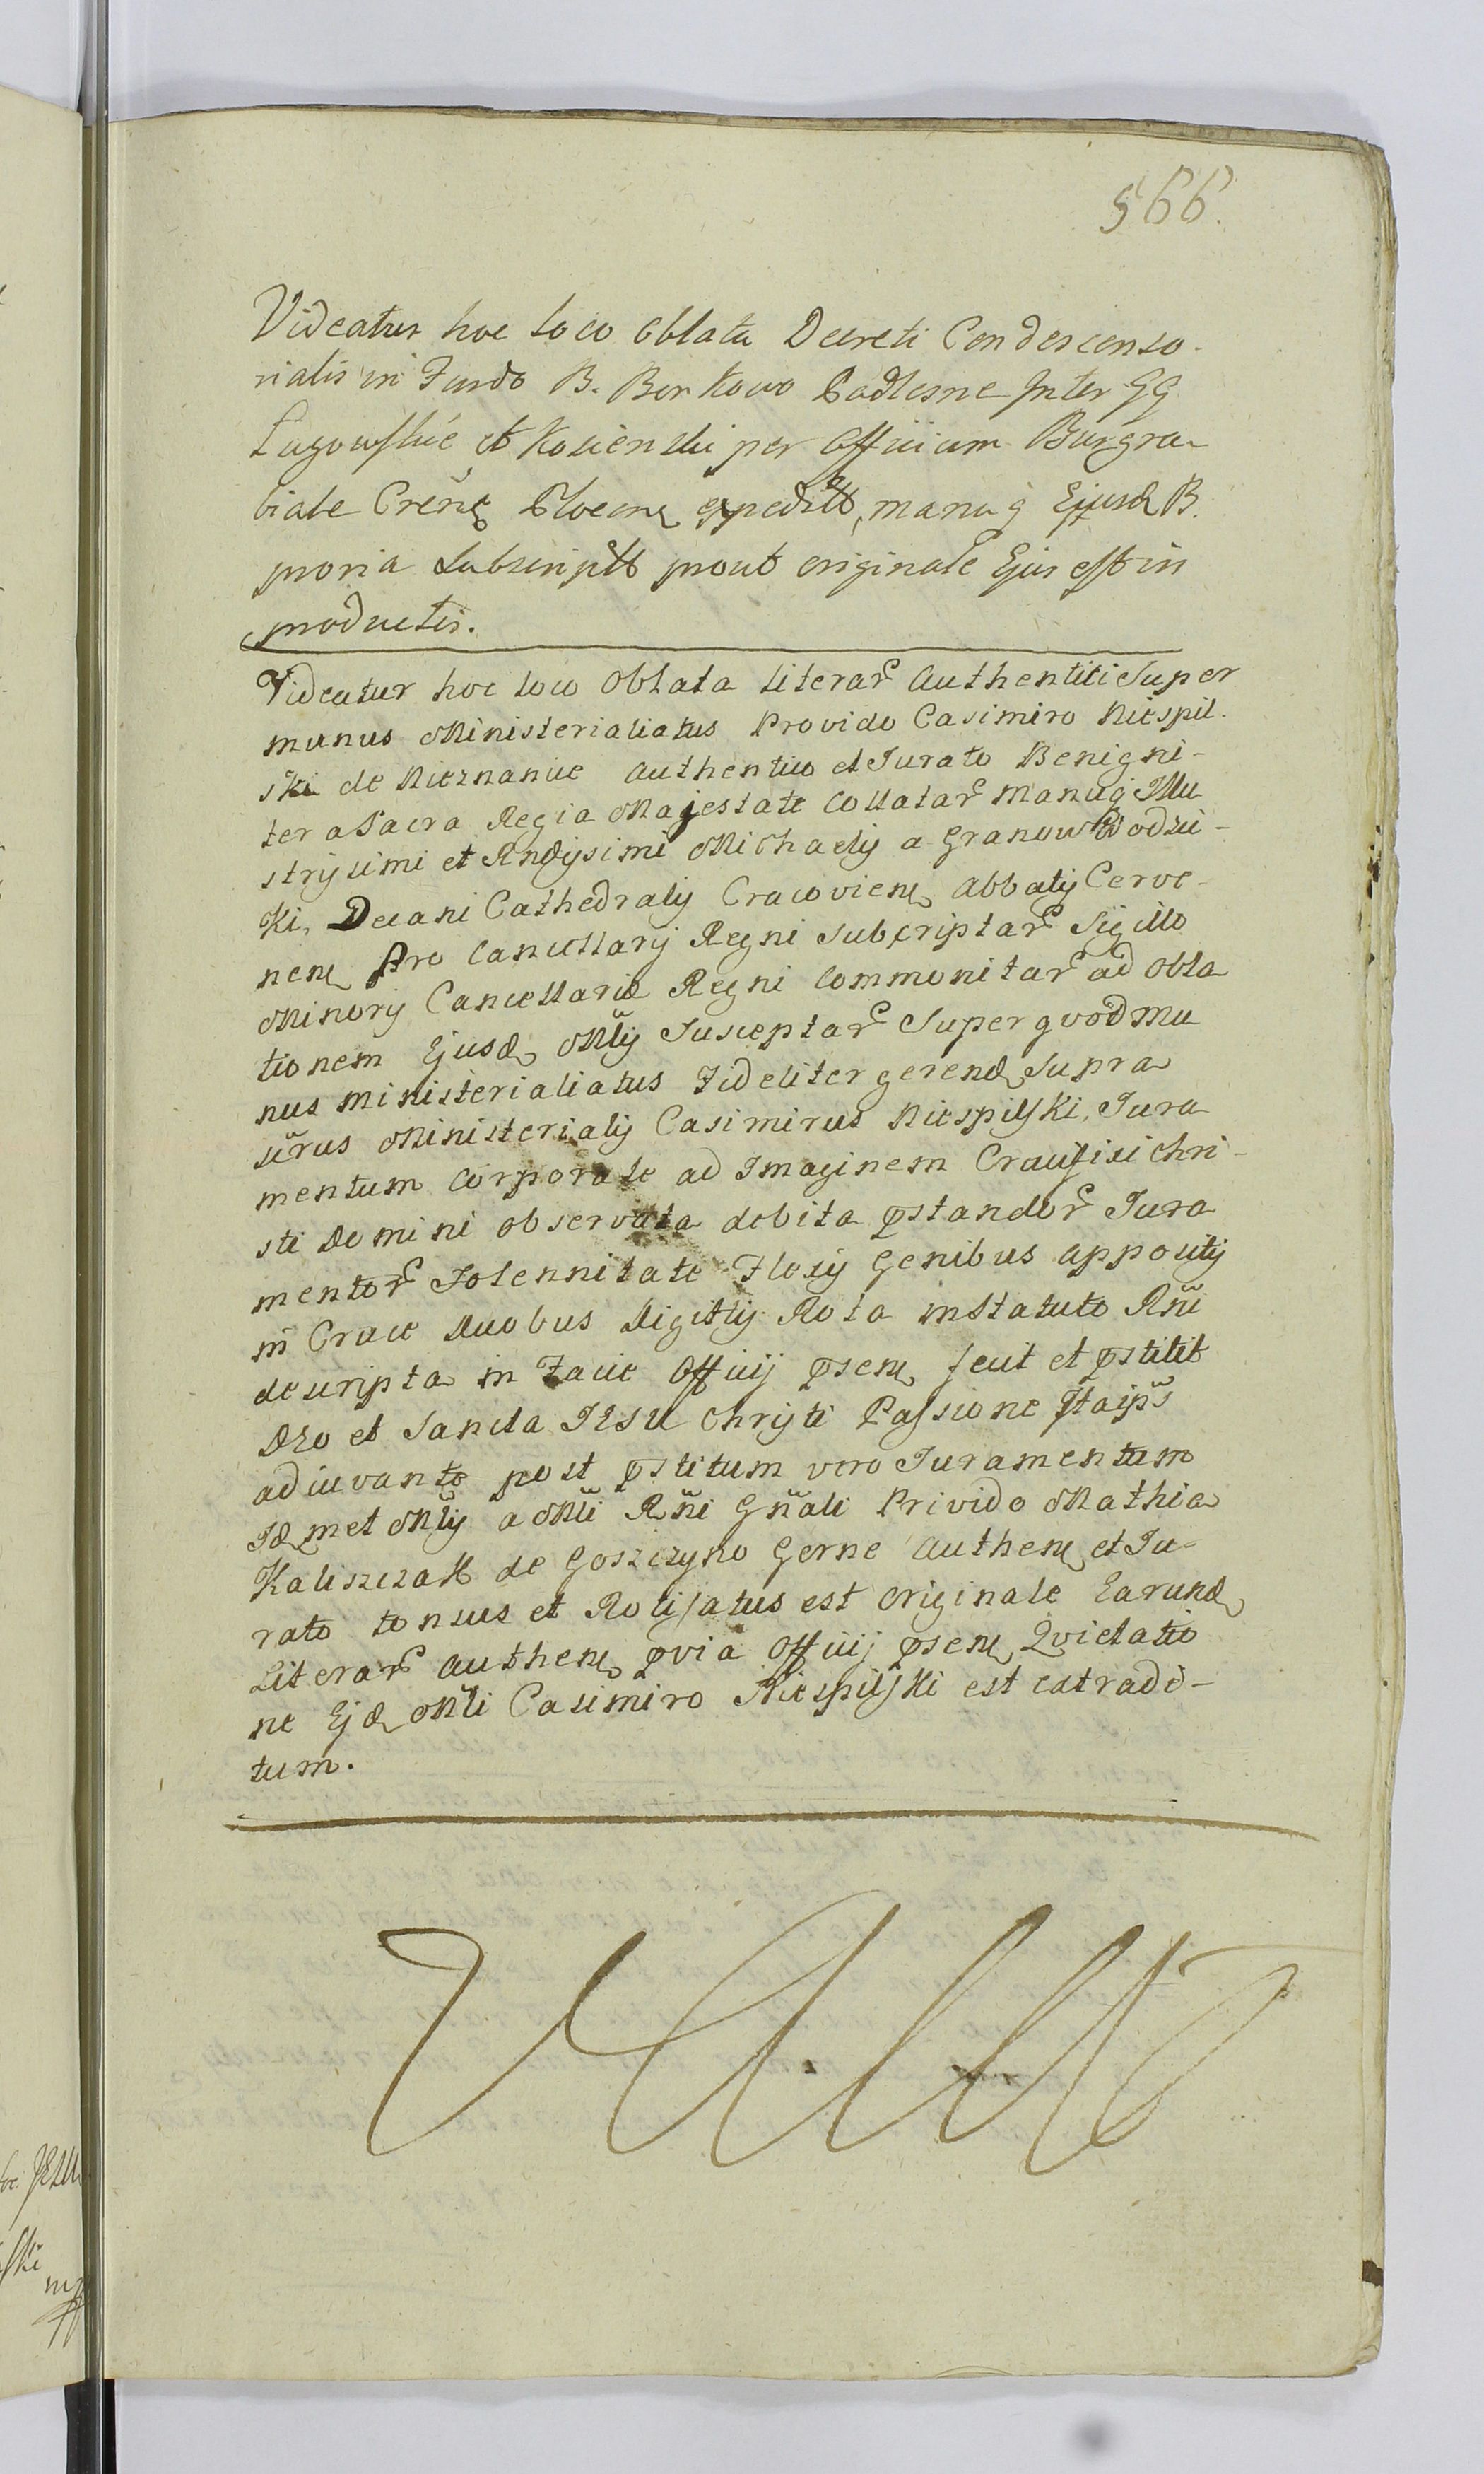 566.
Videatur hoc loco Oblata Decreti Condescenso-
rialis in Fundo B. Borkowo Podlesne Inter GG
Lugowskie et Kosienski per Officium Burgra-
biale Crense Plocen expedit, manuq Ejusd B.
proria Subscript prout originale Ejus est in
productis.
Videatur hoc loco Oblata Literar Authentici Super
munus Ministerialiatus Provido Casimiro Niespil-
ski de Nieznanice Authentico et Jurato Benigni-
ter a Sacra Regia Majestate Collatar manuq Illu
strysimi et Rndysimi Michaelis a Granow Wodzic-
ki, Decani Cathedralis Cracovien, Abbatis Cerve-
nen Pro Cancellarij Regni Subscriptar Sigillo
Minoris Cancellariæ Regni Commonitar ad Obla
tionem Ejusd Mlis Susceptar Super quod mu
nus ministerialiatus Fideliter gerend, Supra
scrus Ministerialis Casimirus Niespilski, Jura
mentum Corporale ad Imaginem Crucifixi Chri-
sti Domini observata debita pstandor Jura
mentor Solennitate Flexis Genibus appositis
in Cruce Duobus Digitis Rota in Statuto Rni
descripta in Facie Officij psen fecit et pstitit
Deo et Sancta Jesu Christi Passione Ita ips
adiuvante post pstitum vero Juramentum
Id met Mlis a Mli Rni Gnali Privido Mathia
Kaliszczak de Goszczyno Gorne Authen et Ju-
rato tonsus et Rotisatus est Originale Earund
Literar Authen qvia Officij psen Qvietatio
ne Ejd Mli Casimiro Niespilski est extradi-
tum.